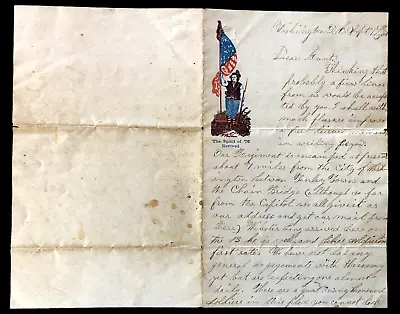 Washington D.C. Sept
Dear Aunt,
Thinking that
probably a few lines
from me would be accep
ted by you I shall with
much pleasure improve
a few
in writing to you.
The Spirit of '76
Revived
Our Regiment is encamped at present
about 7 miles from the City of Wash
ington between Tenley Town and
the Chain Bridge (although so far
from the Capitol we all give it as
our address and get our mail from
there) Webster
the 13 he is well and likes soldiering
first rate. We have not had any
general engagements with the enemy
yet but are expecting one almost
daily. There are a great many thousand
soldiers in this place you cannot look